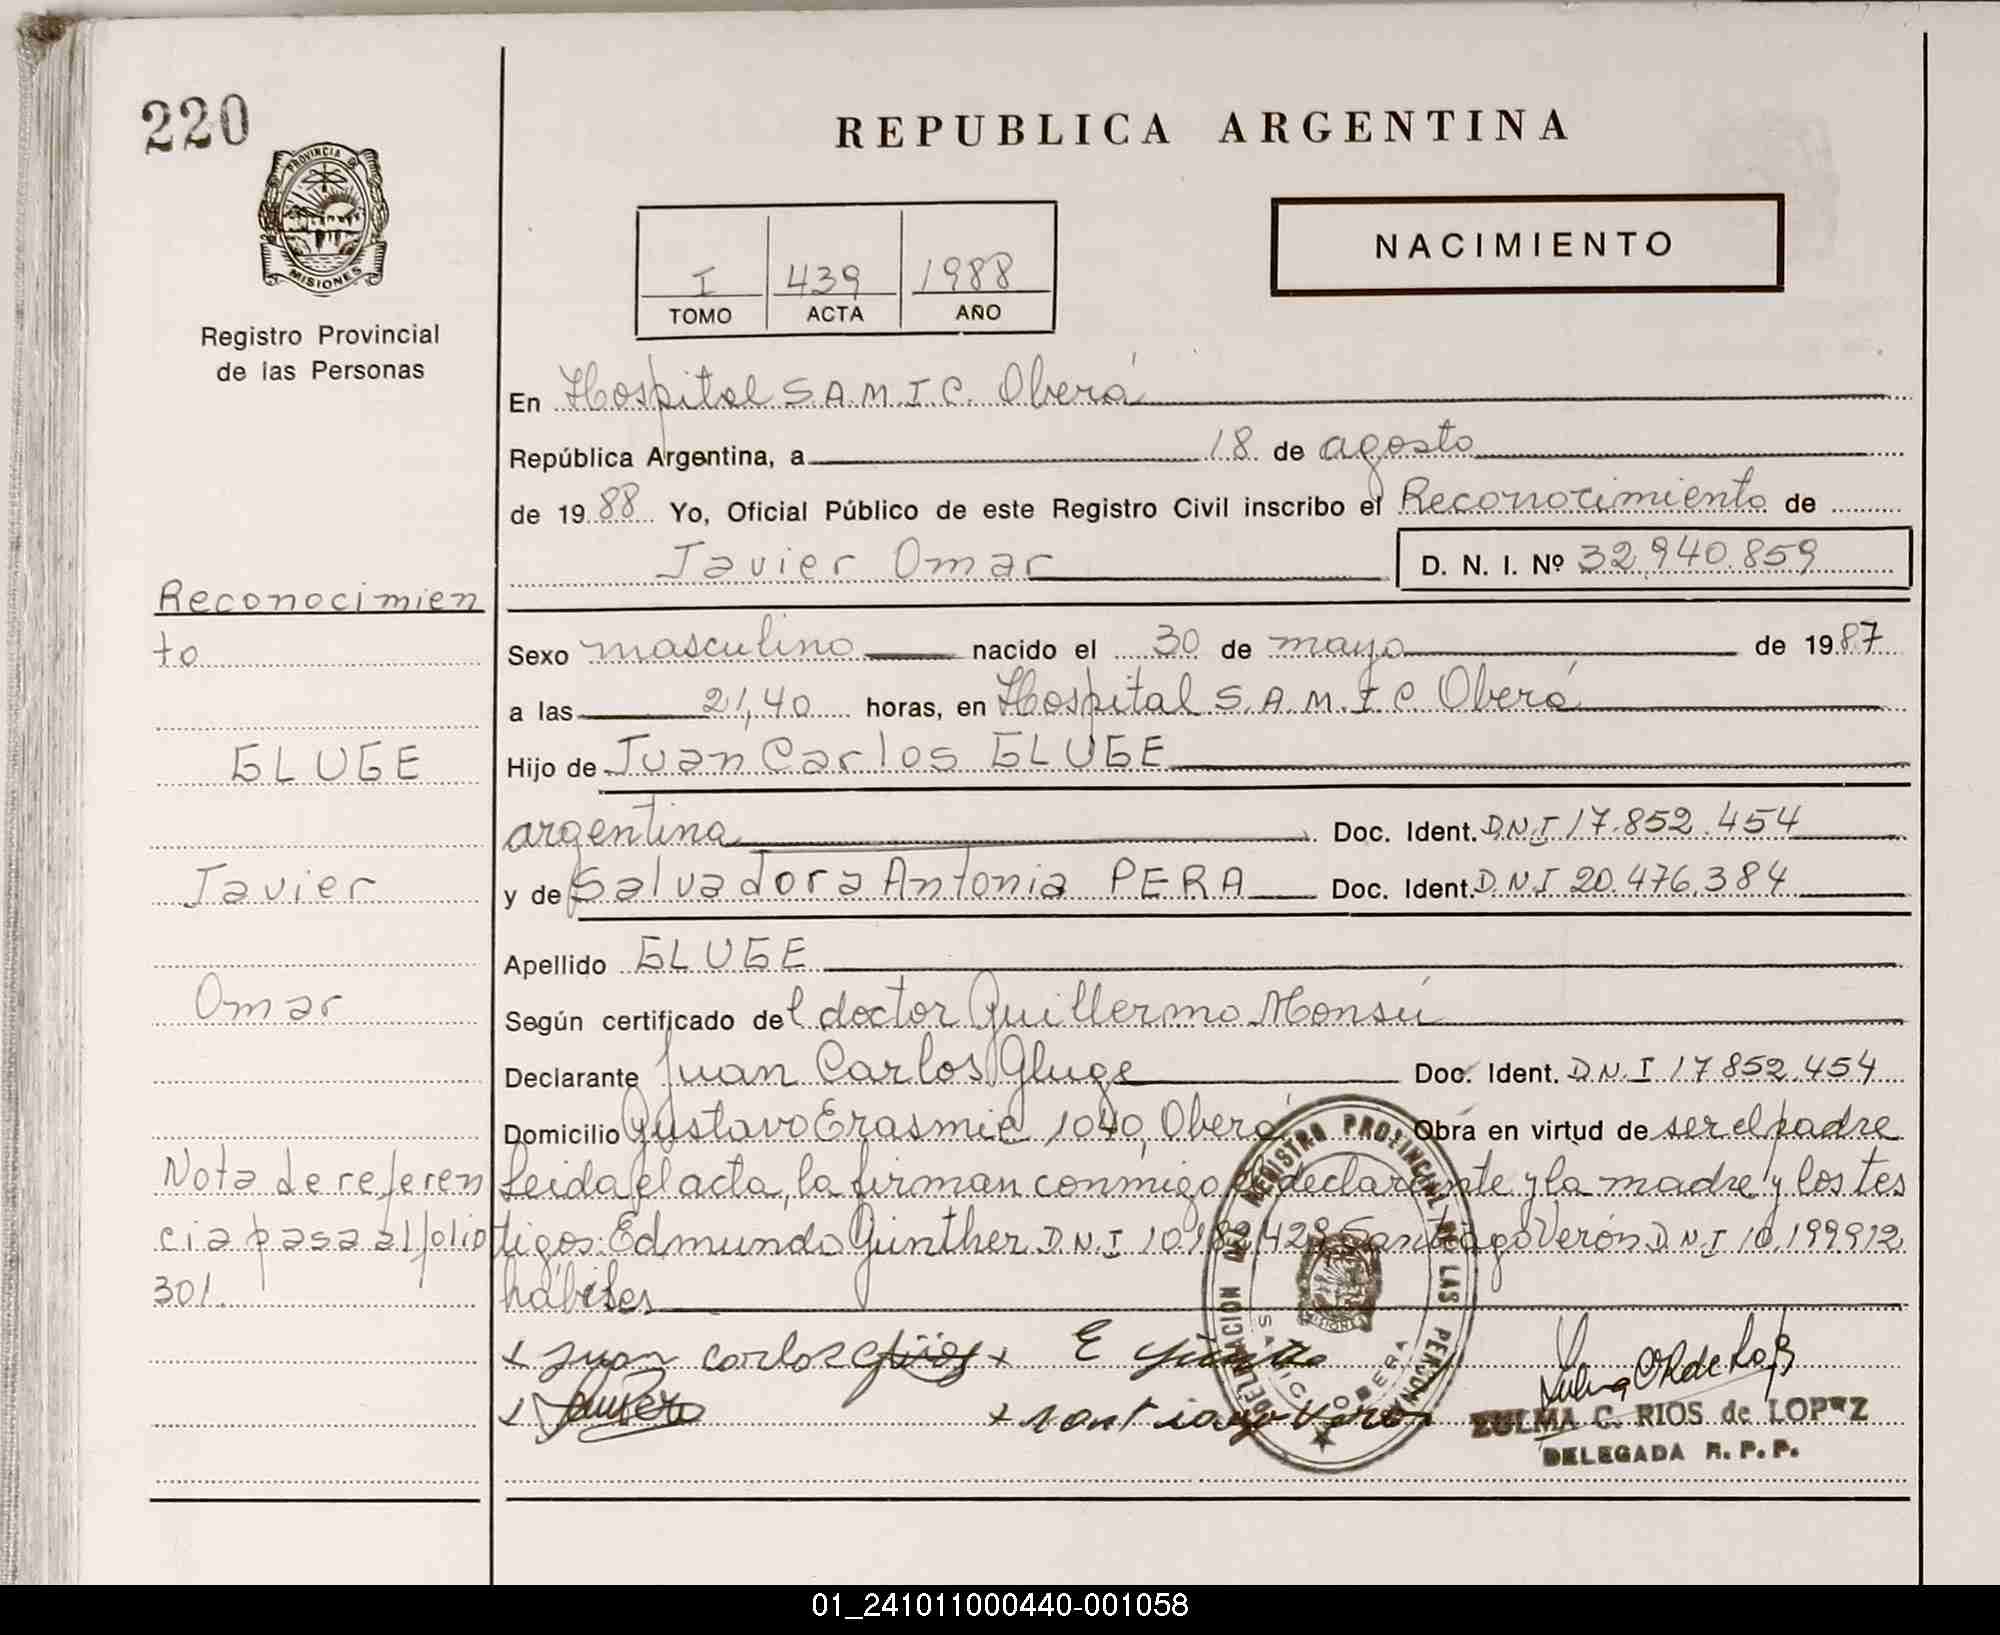 220
PROVINCIA DE
MISIONES
Registro Provincial
de las Personas
REPUBLICA ARGENTINA
I 439 1988
TOMO ACTA AÑO
NACIMIENTO
En Hospital S.A.M.I.C. Oberá
República Argentina, a 18 de agosto
de 1988 Yo, Oficial Público de este Registro Civil inscribo el Reconocimiento de
Javier Omar D. N. I. Nº 32.940.859
Sexo masculino nacido el 30 de mayo de 1987
a las 21,40 horas, en Hospital S.A.M.I.C. Oberá
Hijo de Juan Carlos GLUGE
argentina Doc. Ident. D.N.I 17.852.454
y de Salvadora Antonia PERA Doc. Ident. D.N.I 20.476.384
Apellido GLUGE
Según certificado del doctor Guillermo Monsú
Declarante Juan Carlos Gluge Doc. Ident. D.N.I 17.852.454
Domicilio Gustavo Erasmie 1040, Oberá Obra en virtud de ser el padre
Leida el acta, la firman conmigo el declarante y la madre y los tes
tigos: Edmundo Günther D.N.I Santiago Verón D.N.I 10.199.912
hábiles
x Juan Carlos x E
x x santiago Veron
ZULMA C. RIOS de LOPEZ
DELEGADA R. P. P.
DELEGACION DEL REGISTRO PROVINCIAL DE LAS PERSONAS
OBERA
Reconocimien
to
GLUGE
Javier
Omar
Nota de referen
cia pasa al folio
301.
01_241011000440-001058